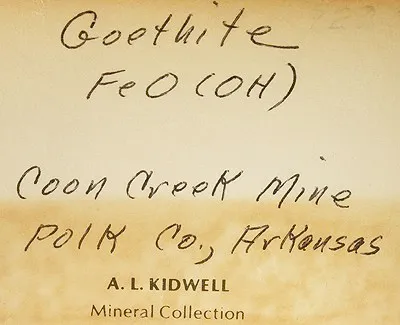 Goethite
FeO(OH)
Coon Creek Mine
Polk Co., Arkansas
A. L. KIDWELL
Mineral Collection